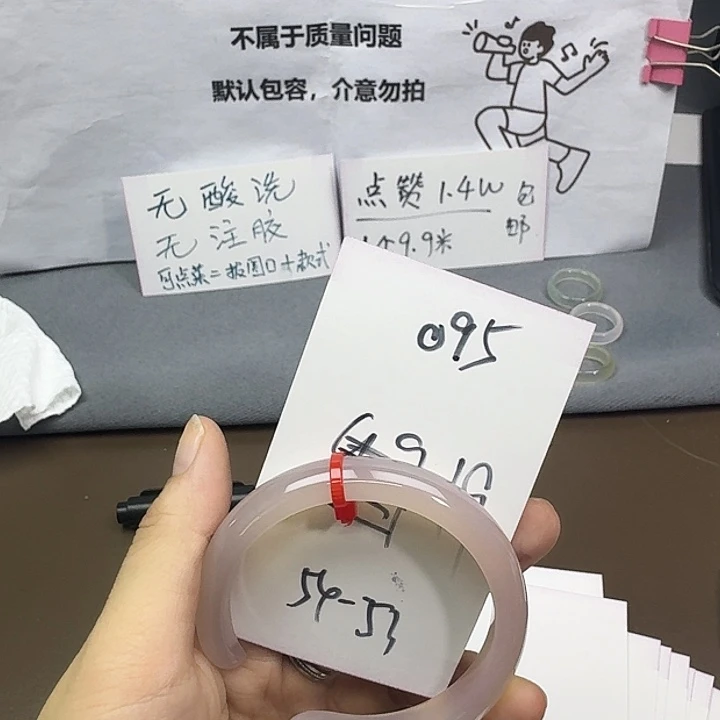 不属于质量问题
默认包容，介意勿拍
无酸洗
无注胶
可点菜=报圈口+款式
点赞 1.4W 包邮
9.9米
095
54-53